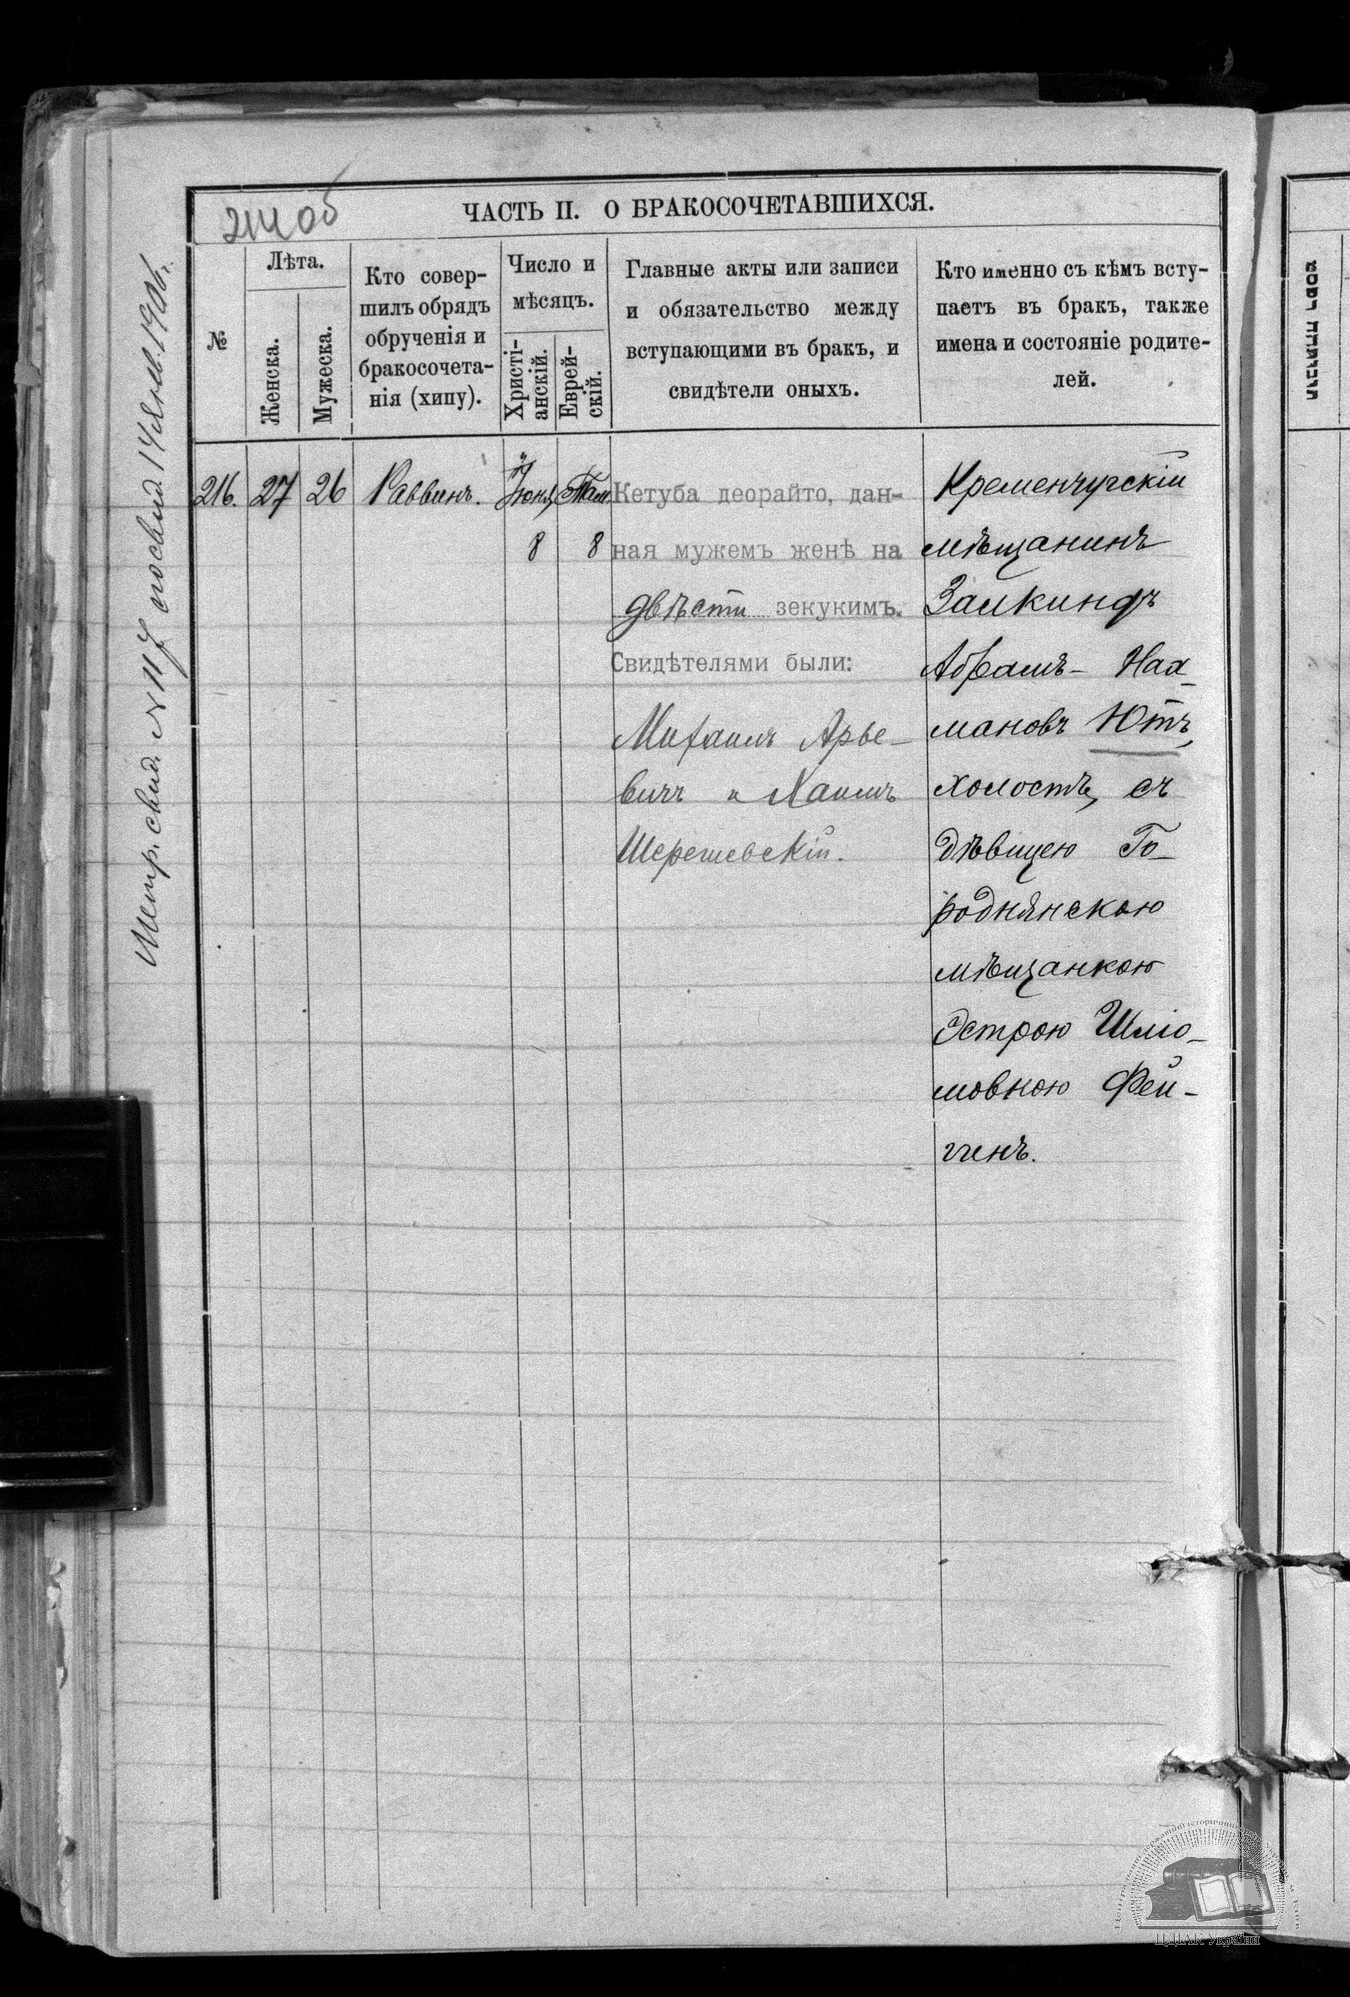 214об
ЧАСТЬ II. О БРАКОСОЧЕТАВШИХСЯ.
№
Лѣта.
Женска.
Мужеска.
Кто совер-
шилъ обрядъ
обрученія и
бракосочета-
нія (хипу).
Число и
мѣсяцъ.
Христі-
анскій.
Еврей-
скій.
Главные акты или записи
и обязательство между
вступающими въ бракъ, и
свидѣтели оныхъ.
Кто именно съ кѣмъ всту-
паетъ въ бракъ, также
имена и состояніе родите-
лей.
216.
27
26
Раввинъ.
Іюня
8
Там.
8
Кетуба деорайто, дан-
ная мужемъ женѣ на
двѣсти зекукимъ.
Свидѣтелями были:
Михаилъ Арье-
вичъ и Хаимъ
Шерешевскій.
Кременчугскій
мѣщанинъ
Залкиндъ
Абрамъ- Нах-
мановъ Ютъ,
холостъ, съ
дѣвицею Го-
роднянскою
мѣщанкою
Эстрою Шлiо-
мовною Фей-
гинъ.
Метр. свид. № 117 14 1906 г.
ЦДІАК України